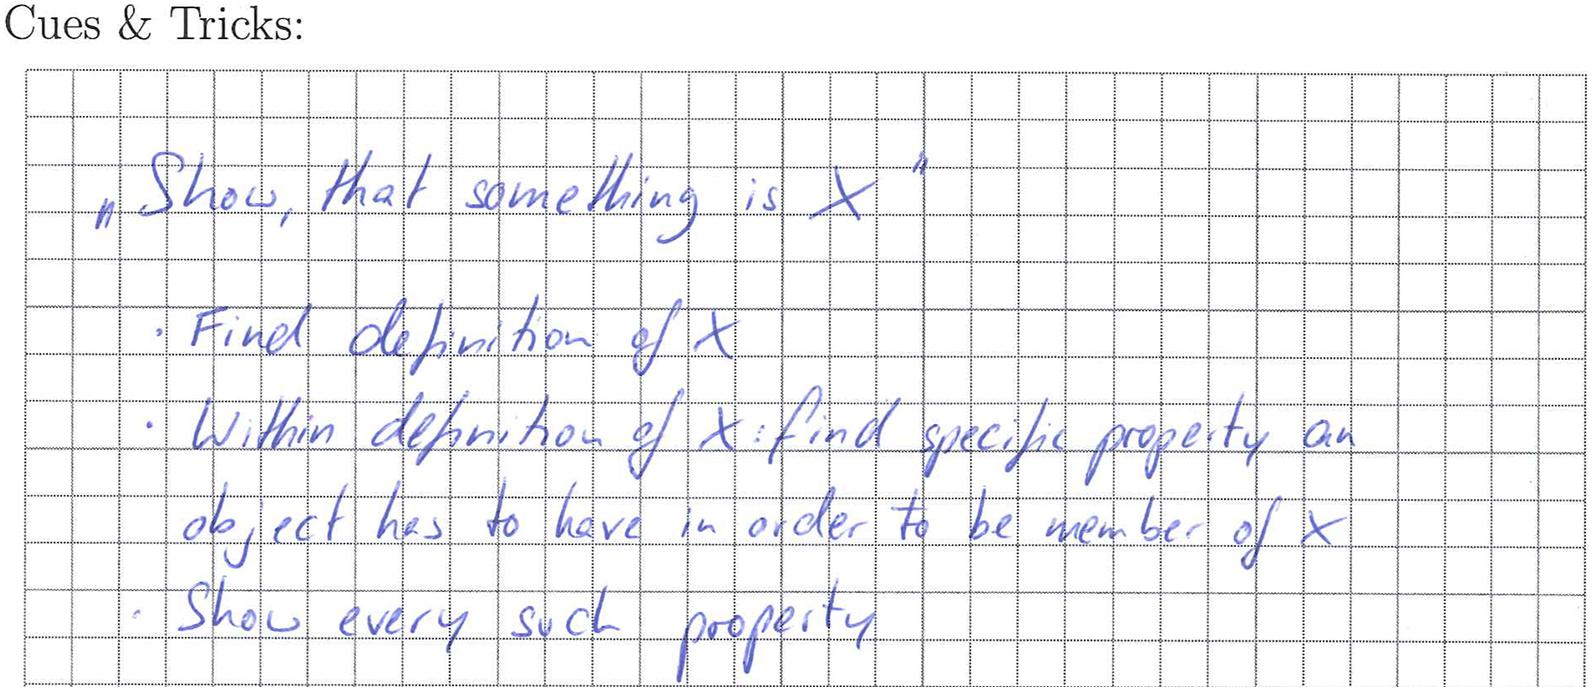 Cues & Tricks:
„Show, that something is X"
· Find definition of X
· Within definition of X: find specific property an
object has to have in order to be member of X
· Show every such property